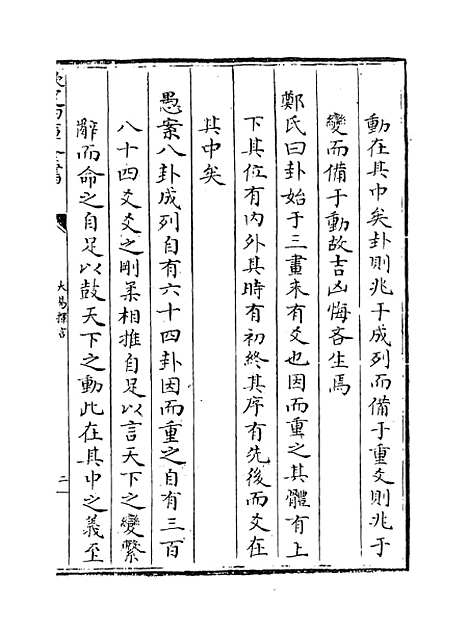 動在其中矣卦則兆于成列而備于重爻則兆于
變而備于動故吉凶悔吝生焉
鄭氏曰卦始于三畫未有爻也因而重之其體有上
下其位有内外其時有初終其序有先後而爻在
其中矣
愚案八卦成列自有六十四卦因而重之自有三百
八十四爻爻之剛柔相推自足以言天下之變繫
辭而命之自足以鼓天下之動此在其中之義至
大易擇言
二